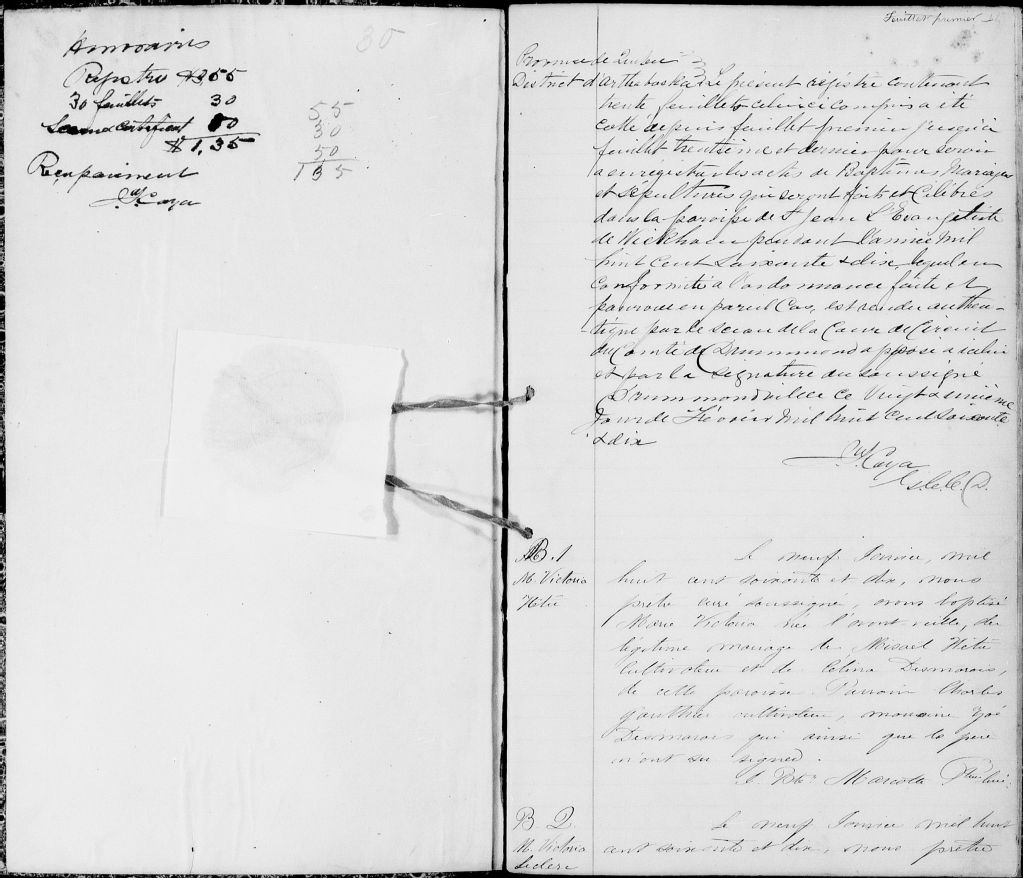 Honoraires
Registre $ 0 55
30 feuillets 30
Second certificat 50
$ 1,35
Reçu paiement
W Caya
30
55
30
50
1 35
Feuillet premier
Province de Québec
District d'Arthabaska Le présent régistre contenant
trente feuillets celui ci compris a été
cotté depuis feuillet premier jusqu'à
feuillet trentième et dernier pour servir
a enrégistrer les actes de Baptêmes Mariages
et Sépultures qui seront faits et célébrés
dans la paroisse de St Jean L'Evangéliste
de Wickham pendant l'année mil
huit cent soixante & dix, lequel en
conformité a l'ordonnance faite et
pourvue en pareil Cas, est rendu authen-
tique par le sceau de la Cour de Circuit
du Comté de Drummond apposé a icelui
et par la signature du soussigné
Drummondville ce Vingt & unième
Jour de Février mil huit cent soixante
& dix
W Caya
B. 1
M. Victoria
Hétu
Le neuf Janvier, mil
huit cent soixante et dix, nous
prêtre curé soussigné, avons baptisé
Marie Victoria née l'avant veille, du
légitime mariage de Misael Hétu
cultivateur et de Célina Desmarais,
de cette paroisse. Parrain Charles
Gauthier cultivateur, marraine Zoé
Desmarais qui ainsi que le père
n'ont su signer.
Marcotte Ptre Curé.
B 2.
M. Victoria
Leclerc
Le neuf Janvier mil huit
cent soixante et dix, nous prêtre